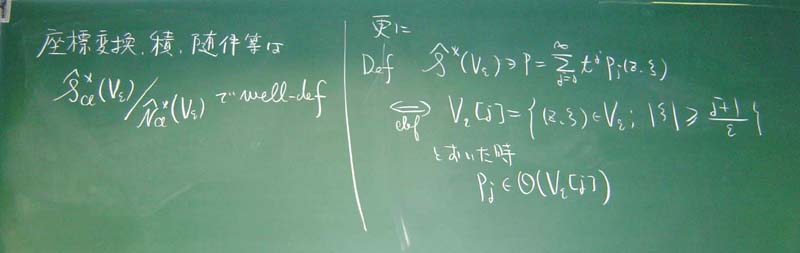 座標変換、積、随伴等は
Ŝ*_{cl}(V_ε)/N̂*_{cl}(V_ε) で well-def
更に
Def Ŝ*(V_ε) ∋ P = ∑_{j=0}^{∞} t^j P_j(z,ξ)
⟺_{def} V_ε[j] = { (z,ξ) ∈ V_ε ; |ξ| ≥ (j+1)/ε }
とおいた時
P_j ∈ O(V_ε[j])